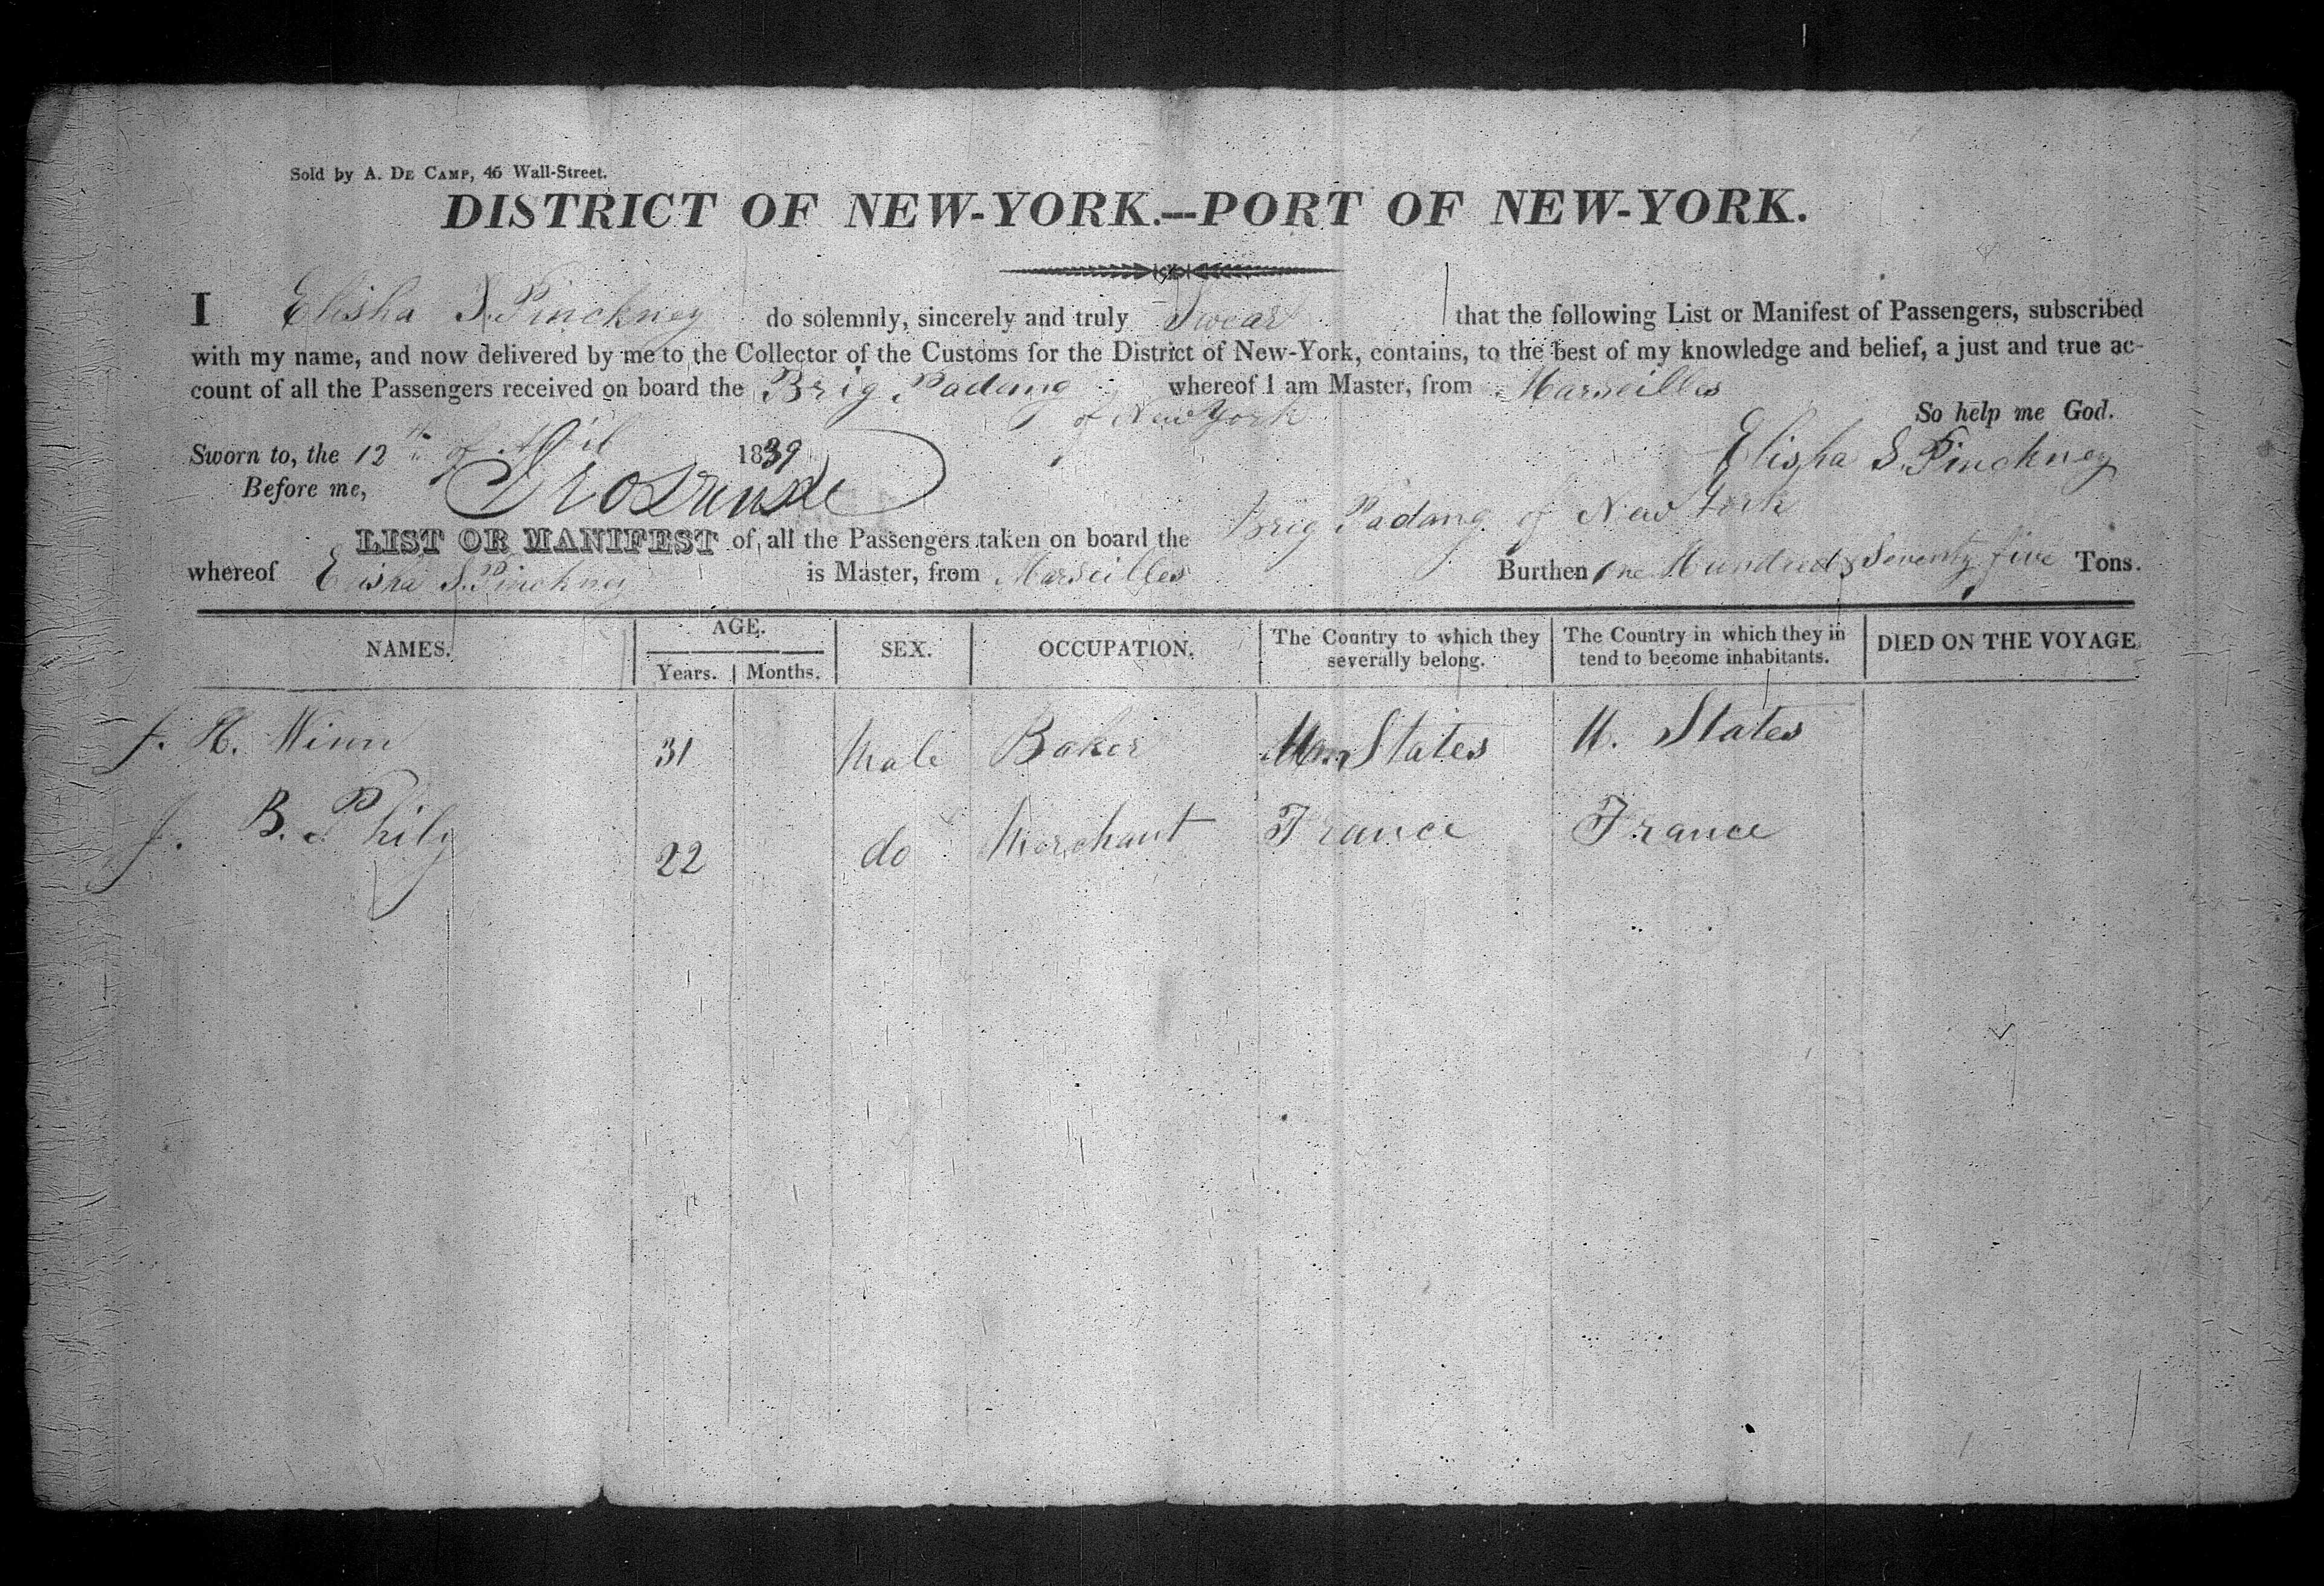 Sold by A. DE CAMP, 46 Wall-Street.
DISTRICT OF NEW-YORK.—PORT OF NEW-YORK.
I Elisha S. Pinckney do solemnly, sincerely and truly Swear that the following List or Manifest of Passengers, subscribed
with my name, and now delivered by me to the Collector of the Customs for the District of New-York, contains, to the best of my knowledge and belief, a just and true ac-
count of all the Passengers received on board the Brig Padang whereof I am Master, from Marseilles
of New York
So help me God.
Sworn to, the 12th of April 1839
Elisha S. Pinckney
Before me,
LIST OR MANIFEST of all the Passengers taken on board the Brig Padang of New York
whereof Elisha S. Pinckney is Master, from Marseilles Burthen One Hundred & Seventy five Tons.
NAMES. AGE. Years. Months. SEX. OCCUPATION. The Country to which they severally belong. The Country in which they in tend to become inhabitants. DIED ON THE VOYAGE.
J. H. Winn 31 Male Baker Un States U. States
J. B. Phily 22 do Merchant France France